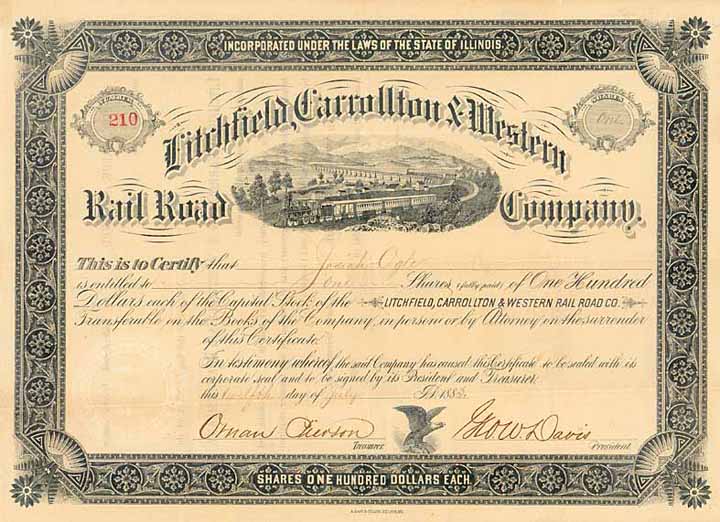 INCORPORATED UNDER THE LAWS OF THE STATE OF ILLINOIS.
NUMBER
210
SHARES
One
Litchfield, Carrollton & Western
Rail Road Company.
This is to Certify that Josiah Ogle
is entitled to One Shares (fully paid) of One Hundred
Dollars each of the Capital Stock of the LITCHFIELD, CARROLLTON & WESTERN RAIL ROAD CO.
Transferable on the Books of the Company, in person or by Attorney on the surrender
of this Certificate.
In testimony whereof the said Company has caused this Certificate to be sealed with its
corporate seal and to be signed by its President and Treasurer,
this day of July A.D. 188
Ornan Pierson
Treasurer
Geo W. Davis
President
SHARES ONE HUNDRED DOLLARS EACH.